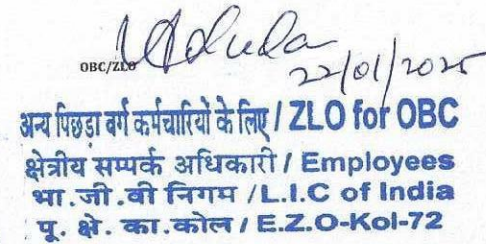 OBC/ZLO
22/01/2025
अन्य पिछड़ा वर्ग कर्मचारियों के लिए / ZLO for OBC
क्षेत्रीय सम्पर्क अधिकारी / Employees
भा.जी.बी निगम / L.I.C of India
पू. क्षे. का.कोल / E.Z.O-Kol-72